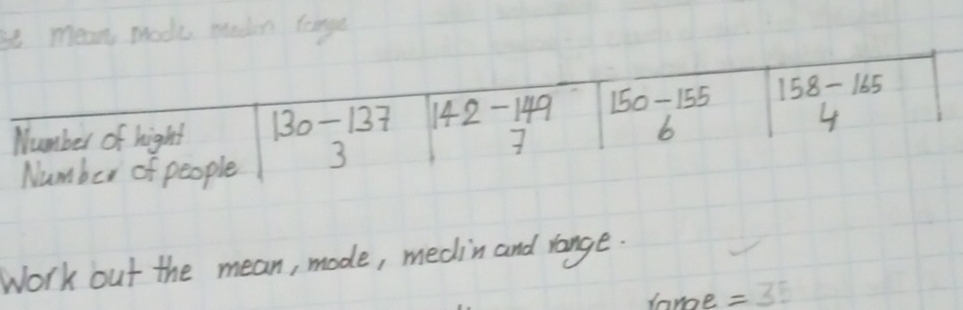 mean, mode range
Number of hight 130-137 142-149 150-155 158-165
Number of people 3 7 6 4
Work out the mean, mode, medin and range.
range = 35